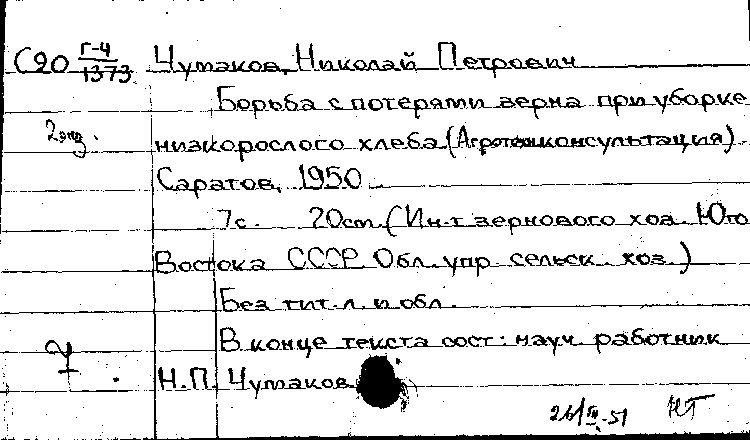 С20 Г-4/1373 Чумаков, Николай Петрович
Борьба с потерями зерна при уборке
2 экз.
низкорослого хлеба (Агротехконсультация).
Саратов, 1950.
7с. 20см. (Ин-т зернового хоз. Юго
Востока СССР. Обл. упр. сельск. хоз.)
Без тит. л. и обл.
В конце текста сост: науч. работник
Н.П. Чумаков
26/III-51